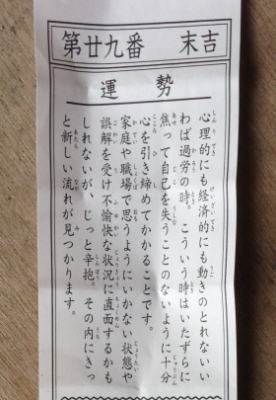 第廿九番　末吉
運勢
心理的にも経済的にも動きのとれないい
わば過労の時。こういう時はいたずらに
焦って自己を失うことのないように十分
心を引き締めてかかることです。
家庭や職場で思うようにいかない状態や
誤解を受け不愉快な状況に直面するかも
しれないが、じっと辛抱。その内にきっ
と新しい流れが見つかります。